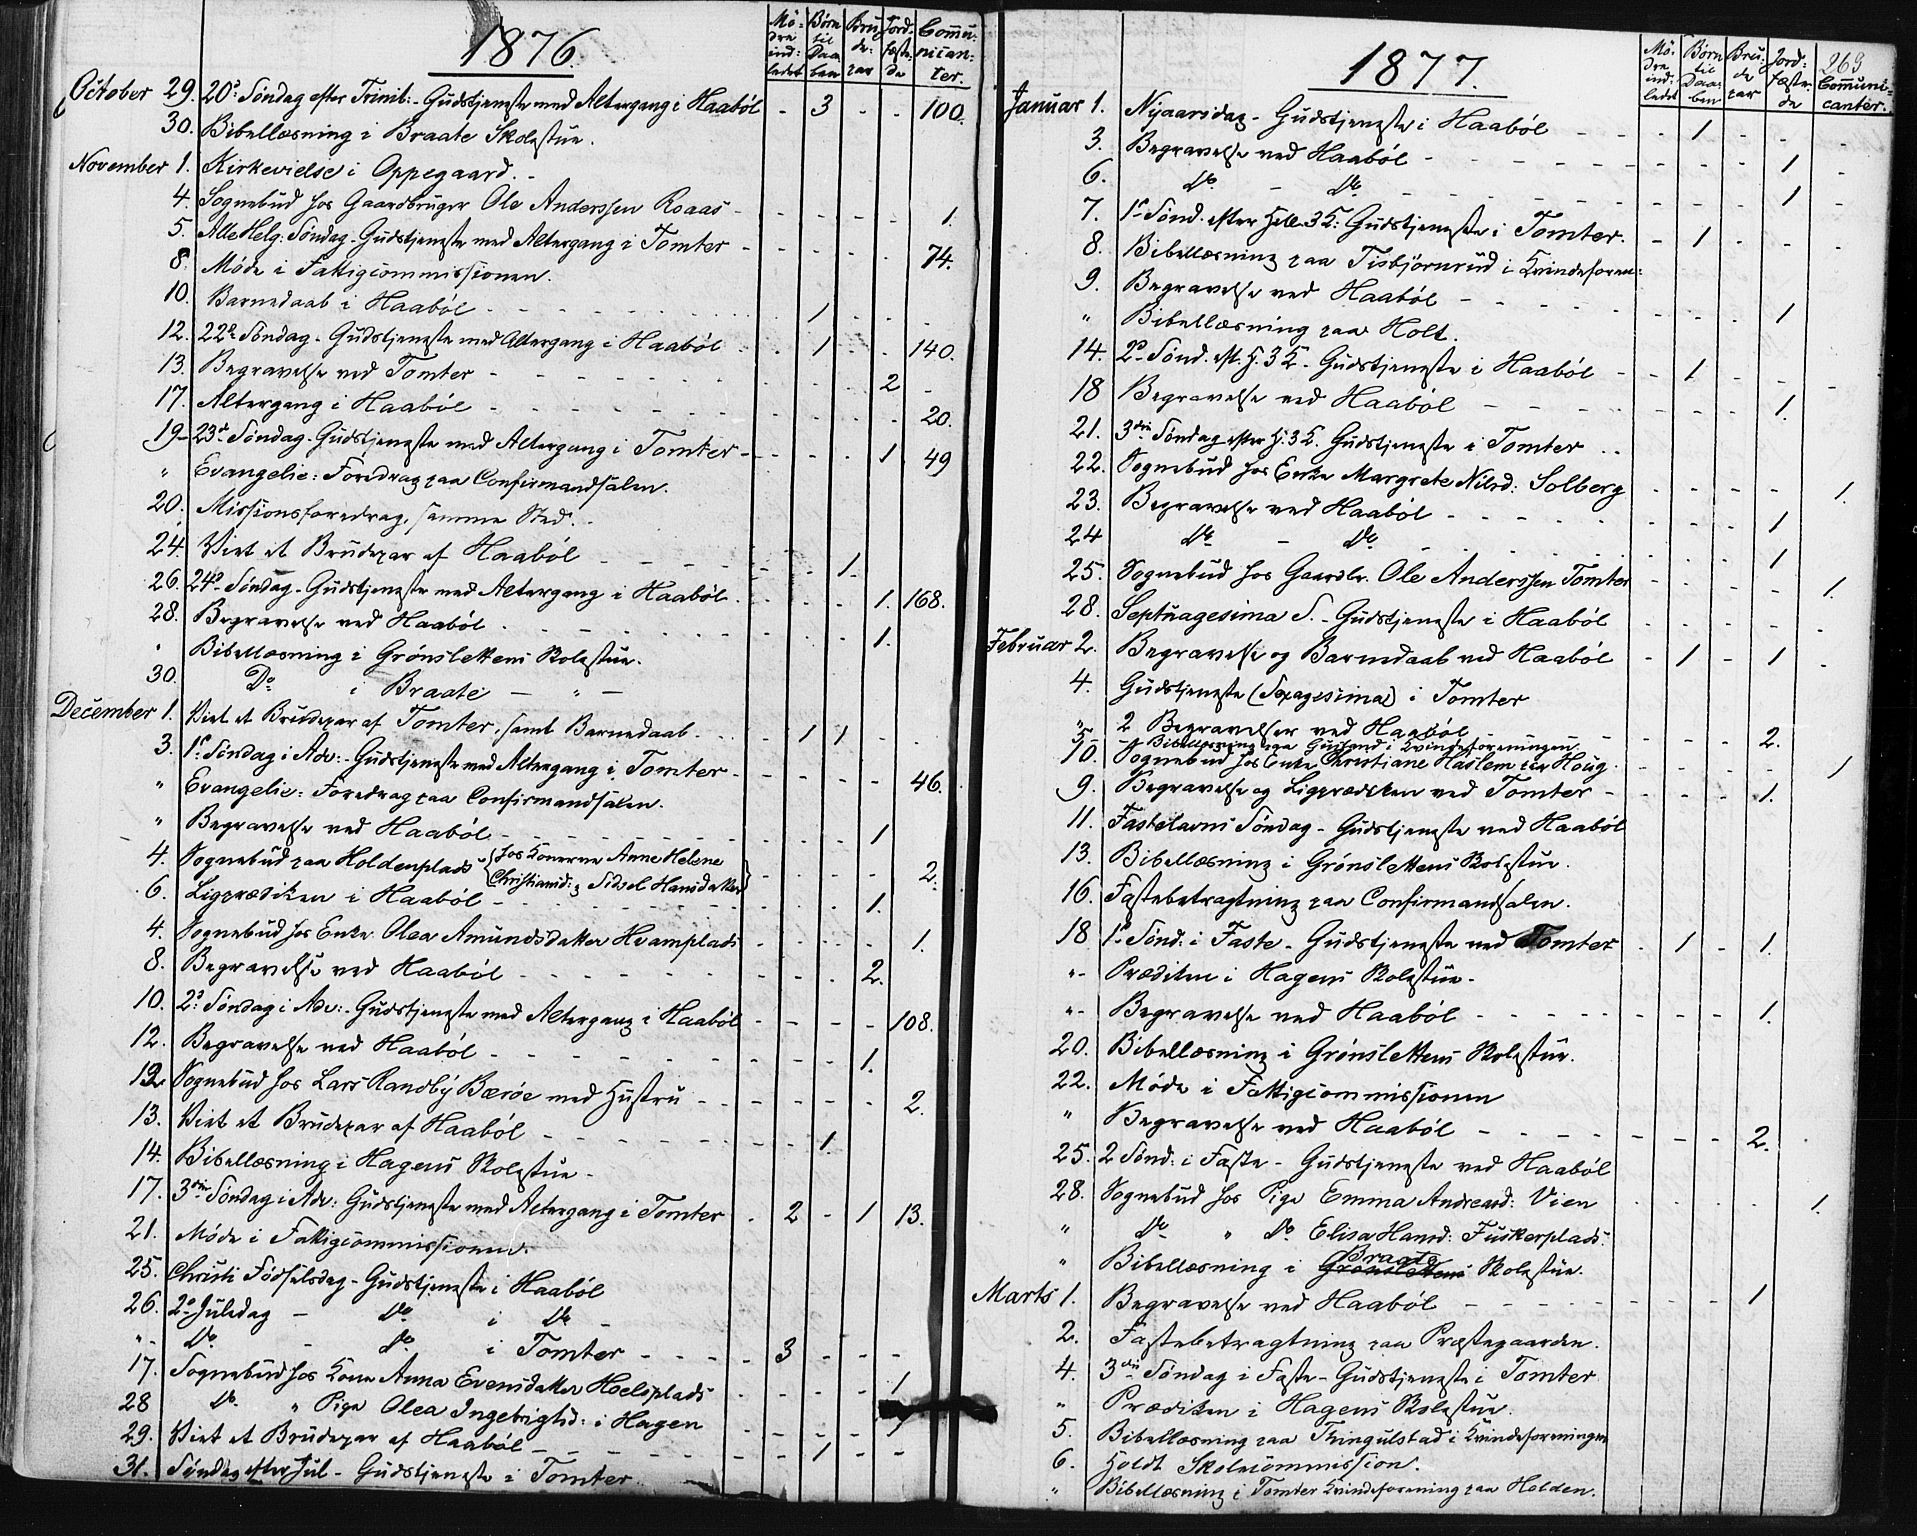 1876.
Mö- dre ind- ledet | Børn til Daa- ben | Bru de- par | Jord- fæste- de | Commu- nican- ter.
October 29. 20d Søndag efter Trinit:- Gudstjeneste med Altergang i Haaböl - 3 - - 100.
30. Bibellæsning i Braate Skolestue.
November 1. Kirkevielse i Oppegaard.
4. Sognebud hos Gaardbruger Ole Anderssen Roaas - - - - 1.
5. Alle Helg: Søndag - Gudstjeneste med Altergang i Tomter - - - - 74.
8. Møde i Fattigcommissionen.
10. Barnedaab i Haaböl - 1 - - -
12. 22d Søndag - Gudstjeneste med Altergang i Haaböl - 1 - - 140.
13. Begravelse ved Tomter - - - 2 -
17. Altergang i Haaböl - - - - 20.
19. 23d Søndag - Gudstjeneste med Altergang i Tomter - - - 1 49
" Evangelie: Foredrag paa Confirmandsalen.
20. Missionsforedrag, samme Sted.
24. Viet et Brudepar af Haaböl - - 1.
26. 24d Søndag - Gudstjeneste med Altergang i Haaböl - - - 1. 168.
28. Begravelse ved Haaböl - - - 1.
" Bibellæsning i Grønslettens Skolestue.
30. Do i Braate — " —
December 1. Viet et Brudepar af Tomter, samt Barnedaab. - 1 1 - -
3. 1s Søndag i Adv:- Gudstjeneste med Altergang i Tomter - - - - 46.
" Evangelie: Foredrag paa Confirmandsalen.
" Begravelse ved Haaböl - - - 1
4. Sognebud paa Holdenplads {hos Konerne Anne Helene
Christiansd: & Sidsel Hansdatter} - - - - 2.
6. Ligprædiken i Haaböl - - - 1.
4. Sognebud hos Enke Olea Amundsdatter Hvamplads - - - - 1.
8. Begravelse ved Haaböl - - - 2.
10. 2d Søndag i Adv:- Gudstjeneste med Altergang i Haaböl - - - - 108.
12. Begravelse ved Haaböl - - - 1.
12. Sognebud hos Lars Randby Bærøe med Hustru - - - - 2.
13. Viet et Brudepar af Haaböl - - 1.
14. Bibellæsning i Hagens Skolestue -
17. 3die Søndag i Adv: Gudstjeneste med Altergang i Tomter - 2 - 1 13.
21. Møde i Fattigcommissionen.
25. Christi Fødselsdag - Gudstjeneste i Haaböl
26. 2d Juledag - Do i Do -
" - Do - Do i Tomter - 3 - - -
17. Sognebud hos Kone Anna Evensdatter Hoelsplads - - - - 1
28 Do " Pige Olea Ingebrigtsd: i Hagen - - - - 1
29. Viet et Brudepar af Haaböl - - 1 - -
31. Søndag efter Jul - Gudstjeneste i Tomter
1877.
263
Mö- dre ind- ledet | Børn til Daa- ben | Bru- de par | Jord- fæste- de | Commu- canter.
Januar 1. Nyaarsdag - Gudstjeneste i Haaböl - 1 - - -
3. Begravelse ved Haaböl - - - 1 -
6. Do - Do - - - 1 -
7. 1s Sønd. efter Hell. 3 K. Gudstjeneste i Tomter. - 1 - - -
8. Bibellæsning paa Tisbjörnrud i Kvindeforen:
9. Begravelse ved Haaböl - - - 1
" Bibellæsning paa Holt.
14. 2d Sønd. eft. H. 3 K - Gudstjeneste i Haaböl - 1 - - -
18 Begravelse ved Haaböl - - - 1.
21. 3die Søndag efter H. 3 K. Gudstjeneste i Tomter
22. Sognebud hos Enke Margrete Nilsd: Solberg - - - - 1.
23. Begravelse ved Haaböl - - - 1
24 Do - Do - - - 1
25. Sognebud hos Gaardbr. Ole Anderssen Tomter - - - - 1.
28. Septuagesima S. - Gudstjeneste i Haaböl - - - - -
Februar 2. Begravelse og Barnedaab ved Haaböl - 1 - 1 -
4. Gudstjeneste (Sexagesima) i Tomter
" 2 Begravelser ved Haaböl - - - 2.
5. Bibellæsning paa i Kvindeforeningen
10. Sognebud hos Enke Christiane Haslem paa Houg. - - - - 1
9. Begravelse og Ligprædiken ved Tomter - - - 1.
11. Fastelavns Søndag - Gudstjeneste ved Haaböl
13. Bibellæsning i Grønslettens Skolestue.
16. Fastebetragtning paa Confirmandsalen.
18 1s Sønd: i Faste - Gudstjeneste ved Tomter - 1 - 1.
" - Prædiken i Hagens Skolestue -
" - Begravelse ved Haaböl - - - 1.
20. Bibellæsning i Grønslettens Skolestue.
22. Møde i Fattigcommissionen
" Begravelse ved Haaböl - - - 2.
25. 2 Sønd: i Faste - Gudstjeneste ved Haaböl
28. Sognebud hos Pige Emma Andreasd: Vien - - - - 1.
" Do " Do Elisa Hansd: Fuskerplads.
" Bibellæsning i Grønslettens Braate Skolestue.
Marts 1. Begravelse ved Haaböl - - - 1
2. Fastebetragtning paa Præstegaarden.
4. 3die Søndag i Faste - Gudstjeneste i Tomter
" Prædiken i Hagens Skolestue.
5. Bibellæsning paa Thingulstad i Kvindeforeningen
6. Holdt Skolecommission.
" Bibellæsning i Tomter Kvindeforening paa Holden.